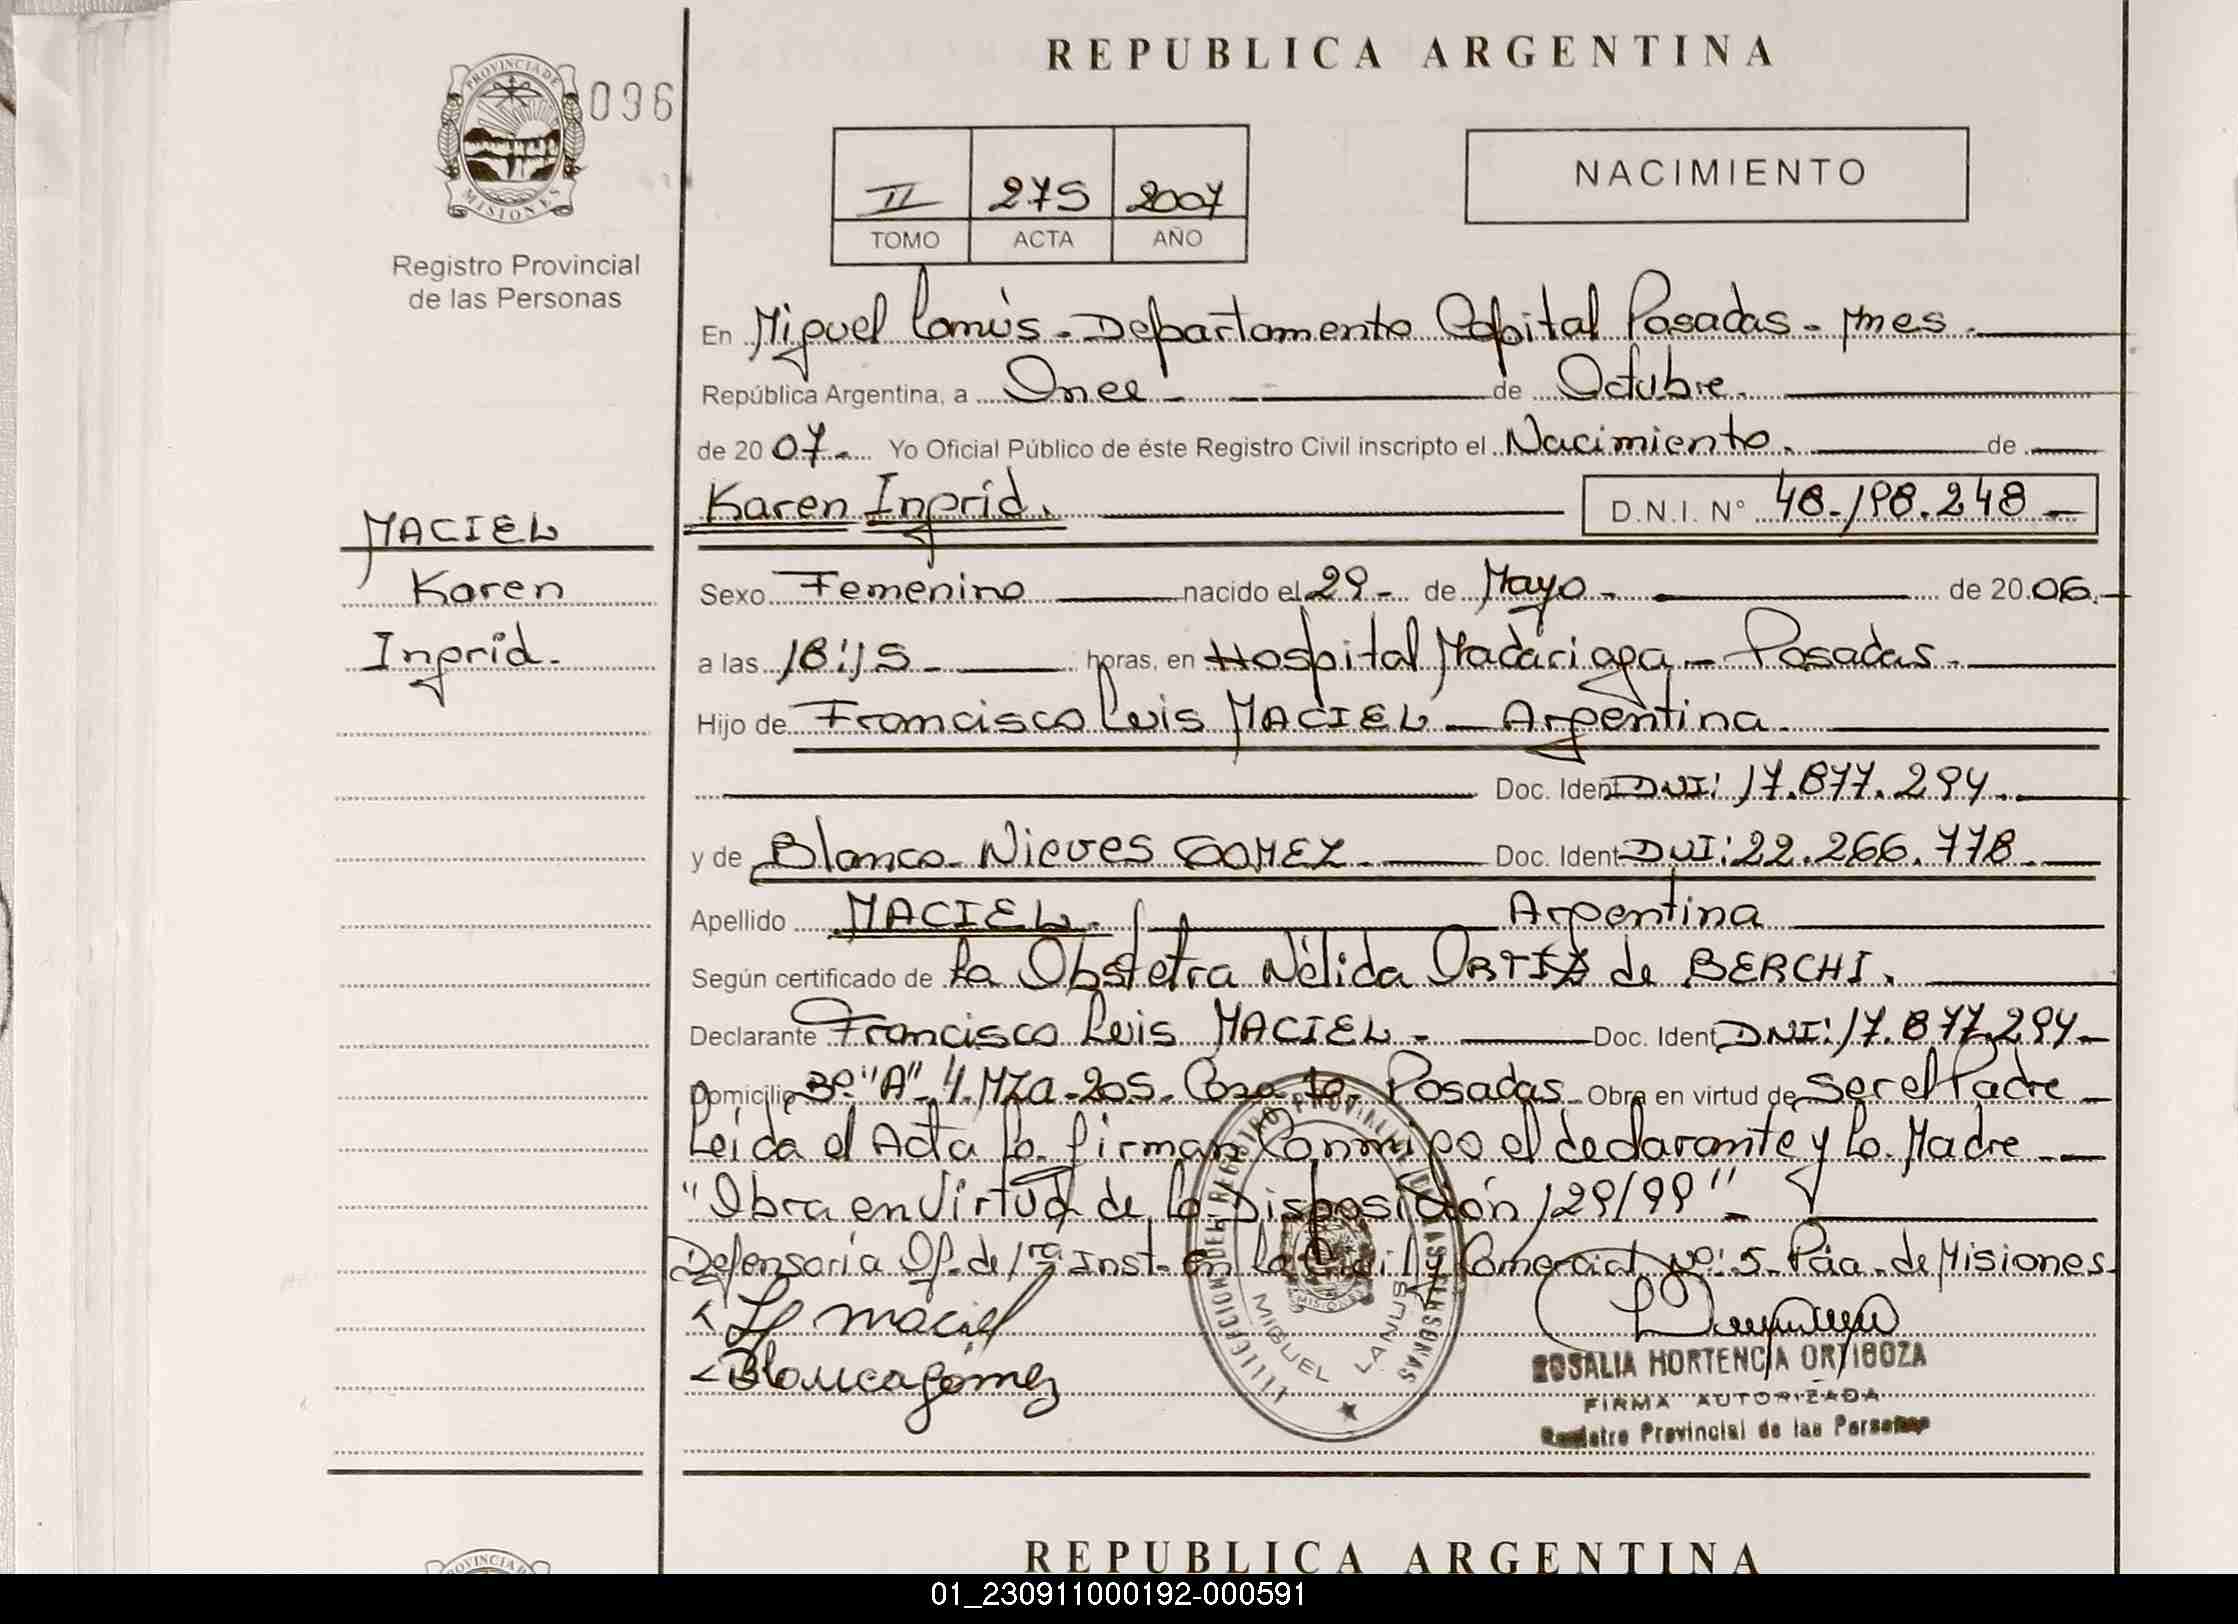 REPUBLICA ARGENTINA
PROVINCIA DE MISIONES
096
Registro Provincial
de las Personas
II 275 2007
TOMO ACTA AÑO
NACIMIENTO
En Miguel Lanús - Departamento Capital Posadas - Mnes.
República Argentina, a Once - de Octubre.
de 2007. Yo Oficial Público de éste Registro Civil inscripto el Nacimiento. de
Karen Ingrid. D.N.I. N° 48.198.248
MACIEL
Karen
Ingrid.
Sexo Femenino nacido el 29 - de Mayo - de 2006.
a las 18:15 - horas, en Hospital Madariaga - Posadas.
Hijo de Francisco Luis MACIEL - Argentina.
Doc. Ident DNI: 17.877.294.
y de Blanca Nieves GOMEZ. Doc. Ident DNI: 22.266.778.
Apellido MACIEL. Argentina
Según certificado de La Obstetra Nélida ORTIZ de BERCHI.
Declarante Francisco Luis MACIEL. Doc. Ident DNI: 17.877.294
Domicilio Bº "A" 4. MZA - 205. Casa 10. Posadas. Obra en virtud de Ser el Padre
Leída el Acta la firman Conmigo el declarante y la Madre
"Obra en Virtud de la Disposición 129/99"
Defensoría Of. de 1ra Inst. en lo Civil y Comercial Nº: 5. Pcia. de Misiones.
Maciel
Blanca Gómez
DIRECCION DEL REGISTRO PROVINCIAL DE LAS PERSONAS
MISIONES
MIGUEL LANUS
ROSALIA HORTENCIA ORTIGOZA
FIRMA AUTORIZADA
Registro Provincial de las Personas
REPUBLICA ARGENTINA
01_230911000192-000591